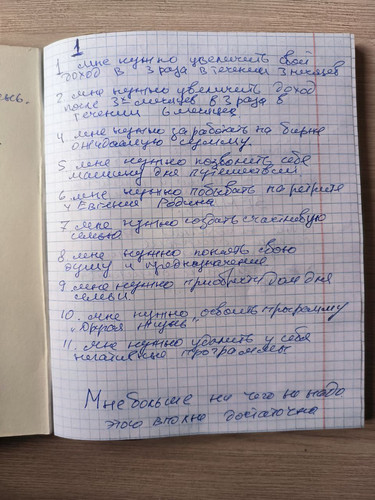 1
1 мне нужно увеличить свой
доход в 3 раза в течении 3 месяцев
2 мне нужно увеличить доход
после 3х месяцев в 3 раза в
течении 6 месяцев
4 мне нужно заработать на бирже
ожидаемую сумму.
5 мне нужно позволить себе
машину для путешествий
6 мне нужно побывать на ретрите
у Евгения Родина
7 мне нужно создать счастливую
семью
8 мне нужно понять свою
душу и предназначение
9 мне нужно приобрести дом для
семьи
10. мне нужно освоить программу
"Другая жизнь"
11. мне нужно удалить у себя
негативные программы
Мне больше ни чего не надо
этого вполне достаточно